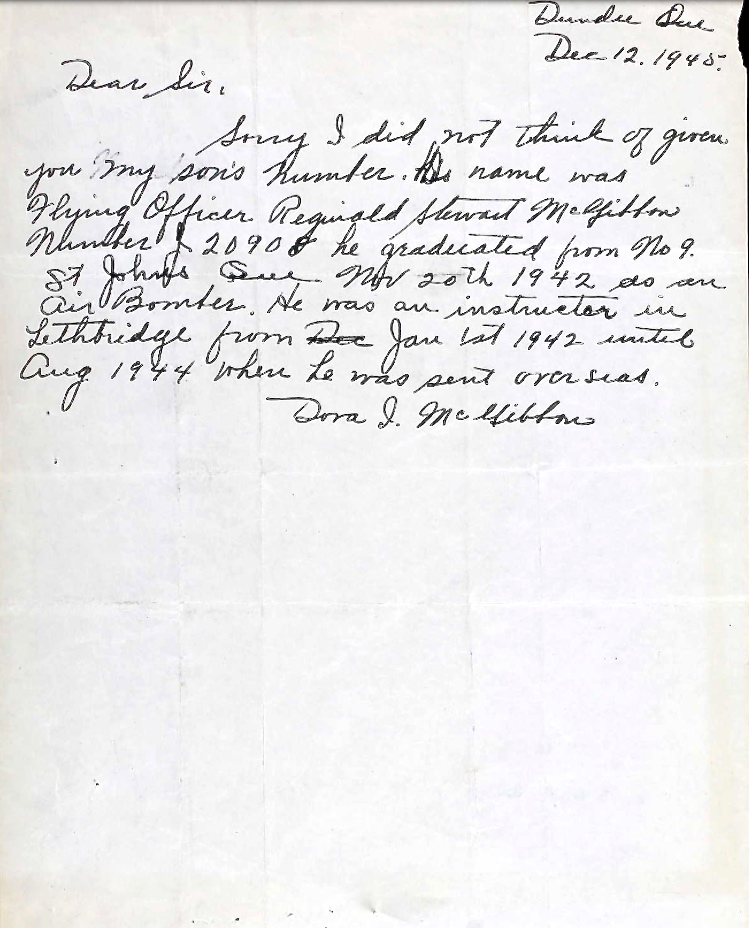 Dundee Que
Dec 12. 1945.
Dear Sir,
Sorry I did not think of given
you my son's number. His name was
Flying Officer Reginald Stewart McGibbon
Number J 20908 he graduated from No 9.
St Johns Que Nov 20th 1942 as an
Air Bomber. He was an instructor in
Lethbridge from Dec Jan 1st 1942 until
Aug 1944 when he was sent overseas.
Dora I. McGibbon